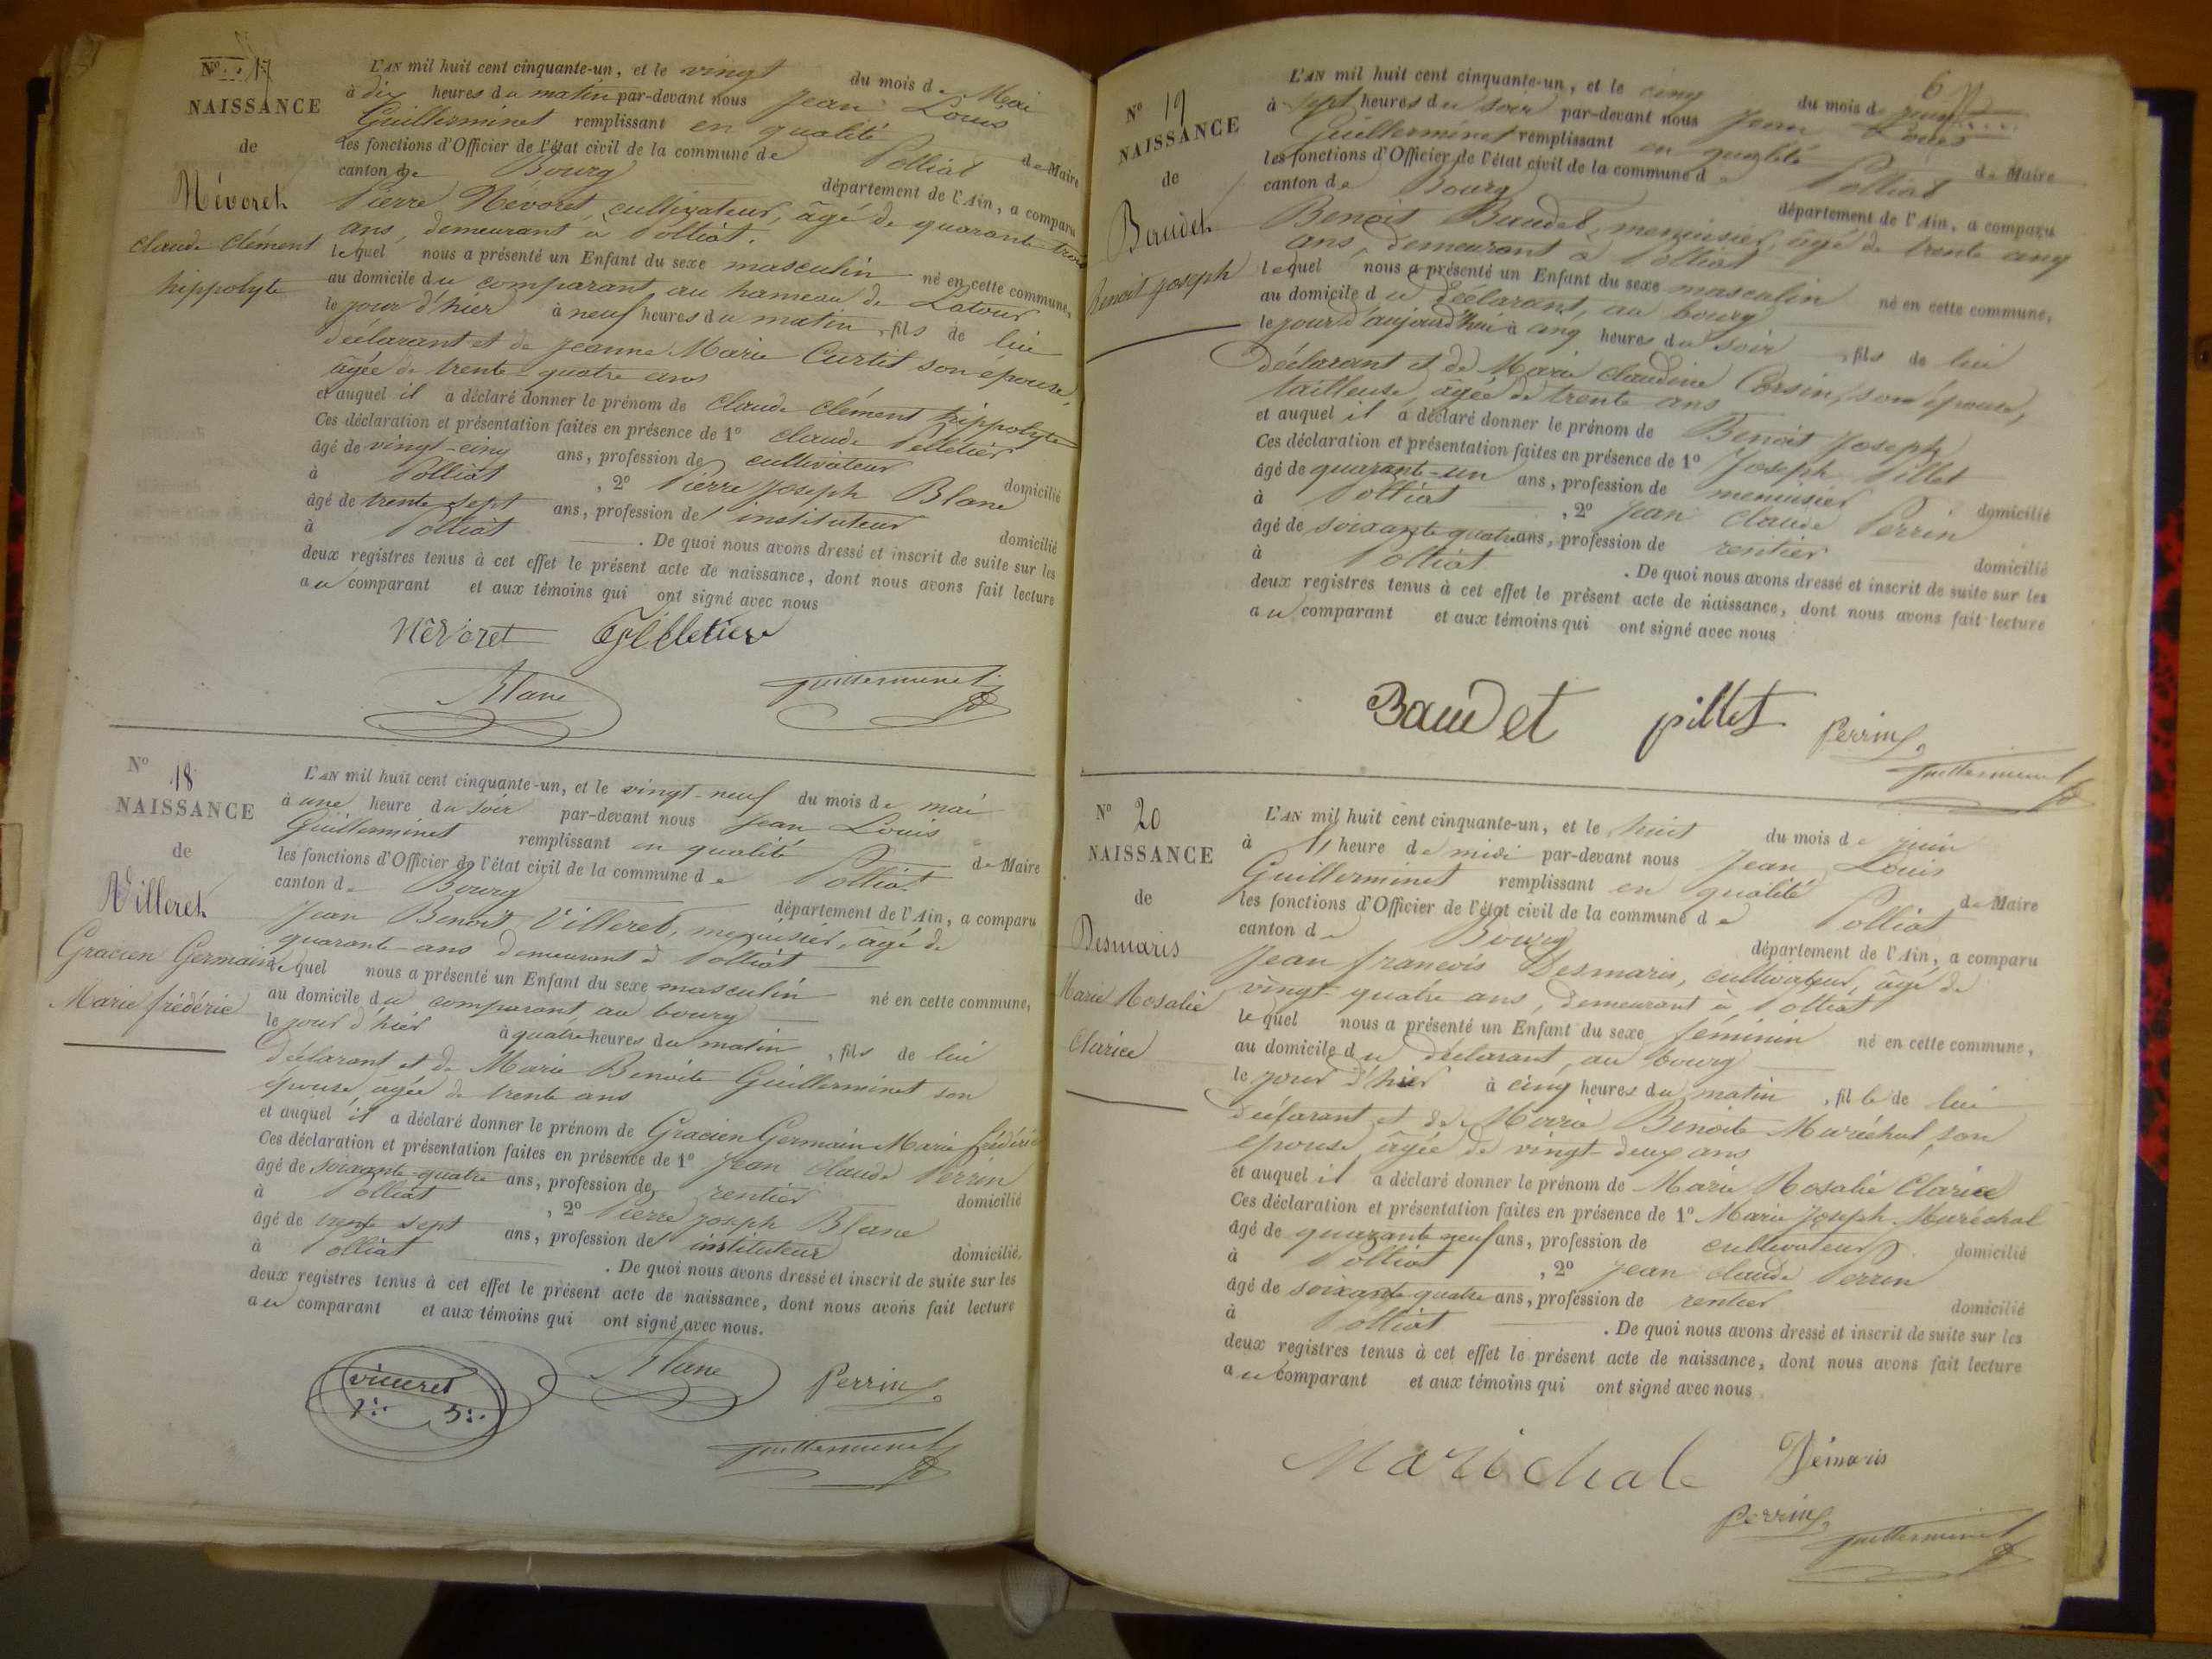 N° 17
NAISSANCE
de
Névoret
Claude Clément
hippolyte
L'AN mil huit cent cinquante-un, et le vingt du mois de Mai
à dix heures du matin par-devant nous Jean Louis
Guillerminet remplissant en qualité de Maire
les fonctions d'Officier de l'état civil de la commune de Polliat
canton de Bourg département de l'Ain, a comparu
Pierre Névoret, cultivateur, âgé de quarante trois
ans, demeurant à Polliat.
lequel nous a présenté un Enfant du sexe masculin né en cette commune,
au domicile du comparant au hameau de Latour
le jour d'hier à neuf heures du matin, fils de lui
déclarant et de Jeanne Marie Curtit son épouse,
âgée de trente quatre ans
et auquel il a déclaré donner le prénom de Claude Clément hippolyte
Ces déclaration et présentation faites en présence de 1° Claude Pelletier
âgé de vingt-cinq ans, profession de cultivateur domicilié
à Polliat, 2° Pierre Joseph Blanc
âgé de trente sept ans, profession de instituteur domicilié
à Polliat. De quoi nous avons dressé et inscrit de suite sur les
deux registres tenus à cet effet le présent acte de naissance, dont nous avons fait lecture
au comparant et aux témoins qui ont signé avec nous
Névoret Pelletier
Blanc Guillerminet
N° 18
NAISSANCE
de
Villeret
Gracien Germain
Marie frédéric
L'AN mil huit cent cinquante-un, et le vingt-neuf du mois de mai
à une heure du soir par-devant nous Jean Louis
Guillerminet remplissant en qualité de Maire
les fonctions d'Officier de l'état civil de la commune de Polliat
canton de Bourg département de l'Ain, a comparu
Jean Benoit Villeret, menuisier, âgé de
quarante ans demeurant à Polliat
lequel nous a présenté un Enfant du sexe masculin né en cette commune,
au domicile du comparant au bourg
le jour d'hier à quatre heures du matin, fils de lui
déclarant et de Marie Benoite Guillerminet son
épouse, agée de trente ans
et auquel il a déclaré donner le prénom de Gracien Germain Marie frédéric
Ces déclaration et présentation faites en présence de 1° Jean Claude Perrin
âgé de soixante-quatre ans, profession de rentier domicilié
à Polliat, 2° Pierre Joseph Blanc
âgé de trente sept ans, profession de instituteur domicilié
à Polliat. De quoi nous avons dressé et inscrit de suite sur les
deux registres tenus à cet effet le présent acte de naissance, dont nous avons fait lecture
au comparant et aux témoins qui ont signé avec nous.
Villeret Blanc Perrin
Guillerminet
6
N° 19
NAISSANCE
de
Baudet
Benoit Joseph
L'AN mil huit cent cinquante-un, et le cinq du mois de juin
à sept heures du soir par-devant nous Jean Louis
Guillerminet remplissant en qualité de Maire
les fonctions d'Officier de l'état civil de la commune de Polliat
canton de Bourg département de l'Ain, a comparu
Benoit Baudet, menuisier, âgé de trente cinq
ans, demeurant à Polliat
lequel nous a présenté un Enfant du sexe masculin né en cette commune,
au domicile du déclarant, au bourg
le jour d'aujourd'hui à cinq heures du soir, fils de lui
déclarant et de Marie Claudine Corsin, son épouse,
tailleuse, âgée de trente ans
et auquel il a déclaré donner le prénom de Benoit Joseph
Ces déclaration et présentation faites en présence de 1° Joseph Pillet
âgé de quarante-un ans, profession de menuisier domicilié
à Polliat, 2° Jean Claude Perrin
âgé de soixante quatre ans, profession de rentier domicilié
à Polliat. De quoi nous avons dressé et inscrit de suite sur les
deux registres tenus à cet effet le présent acte de naissance, dont nous avons fait lecture
au comparant et aux témoins qui ont signé avec nous
Baudet pillet Perrin
Guillerminet
N° 20
NAISSANCE
de
Desmaris
Marie Rosalie
Clarice
L'AN mil huit cent cinquante-un, et le huit du mois de juin
à heure de midi par-devant nous Jean Louis
Guillerminet remplissant en qualité de Maire
les fonctions d'Officier de l'état civil de la commune de Polliat
canton de Bourg département de l'Ain, a comparu
Jean françois Desmaris, cultivateur, âgé de
vingt-quatre ans, demeurant à Polliat
lequel nous a présenté un Enfant du sexe féminin né en cette commune,
au domicile du déclarant, au bourg
le jour d'hier à cinq heures du matin, fille de lui
déclarant et de Marie Benoite Maréchal, son
épouse, âgée de vingt-deux ans
et auquel il a déclaré donner le prénom de Marie Rosalie Clarice
Ces déclaration et présentation faites en présence de 1° Marie Joseph Maréchal
âgé de quarante neuf ans, profession de cultivateur domicilié
à Polliat, 2° Jean Claude Perrin
âgé de soixante quatre ans, profession de rentier domicilié
à Polliat. De quoi nous avons dressé et inscrit de suite sur les
deux registres tenus à cet effet le présent acte de naissance, dont nous avons fait lecture
au comparant et aux témoins qui ont signé avec nous
Marichal Démaris
Perrin Guillerminet